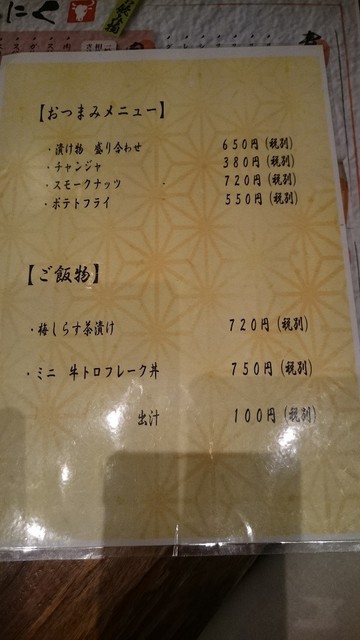 にく
【おつまみメニュー】
・漬け物 盛り合わせ 650円(税別)
・チャンジャ 380円(税別)
・スモークナッツ 720円(税別)
・ポテトフライ 550円(税別)
【ご飯物】
・梅しらす茶漬け 720円(税別)
・ミニ 牛トロフレーク丼 750円(税別)
出汁 100円(税別)